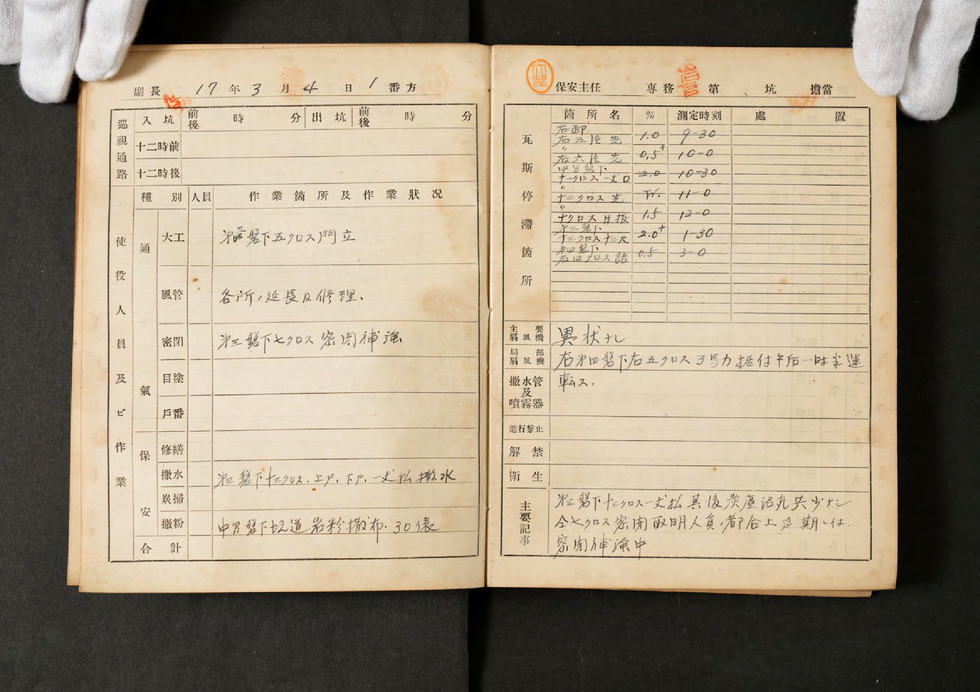 副長 17年3月4日1番方
巡視通路
入坑 前後 時 分 出坑 前後 時 分
十二時前
十二時後
使役人員及ビ作業
種別 人員 作業箇所及作業狀况
通氣
大工 盤下五クロス門立
風管 各所ノ延長及修理、
密閉 盤下七クロス密閉補強
目塗
戶番
保安
修繕
撒水 盤下十三クロス、上戸、下戸、一丈払撒水
炭掃
撒粉 盤下坑道岩粉撒布、30俵
合計
保安主任 專務 第 坑 擔當
瓦斯停滯箇所
箇所名 % 測定時刻 處置
右卸
右五片先 1.0 9-30
右六片先 0.5+ 10-0
十一クロス一丈口 2.0 10-30
〃
十二クロス先 Tr. 11-0
〃
1.5 12-0
2.0+ 1-30
右四クロス詰 0.5 3-0
主要扇風機 異状ナシ
局部扇風機 右第四盤下右五クロス3馬力据付午后一時半運
轉ス.
撒水管及噴霧器
進行禁止
解禁
衛生
主要記事
盤下十三クロス一丈払其後炭塵
仝七クロス密閉 人員ノ都合上延期シ
密閉補強中